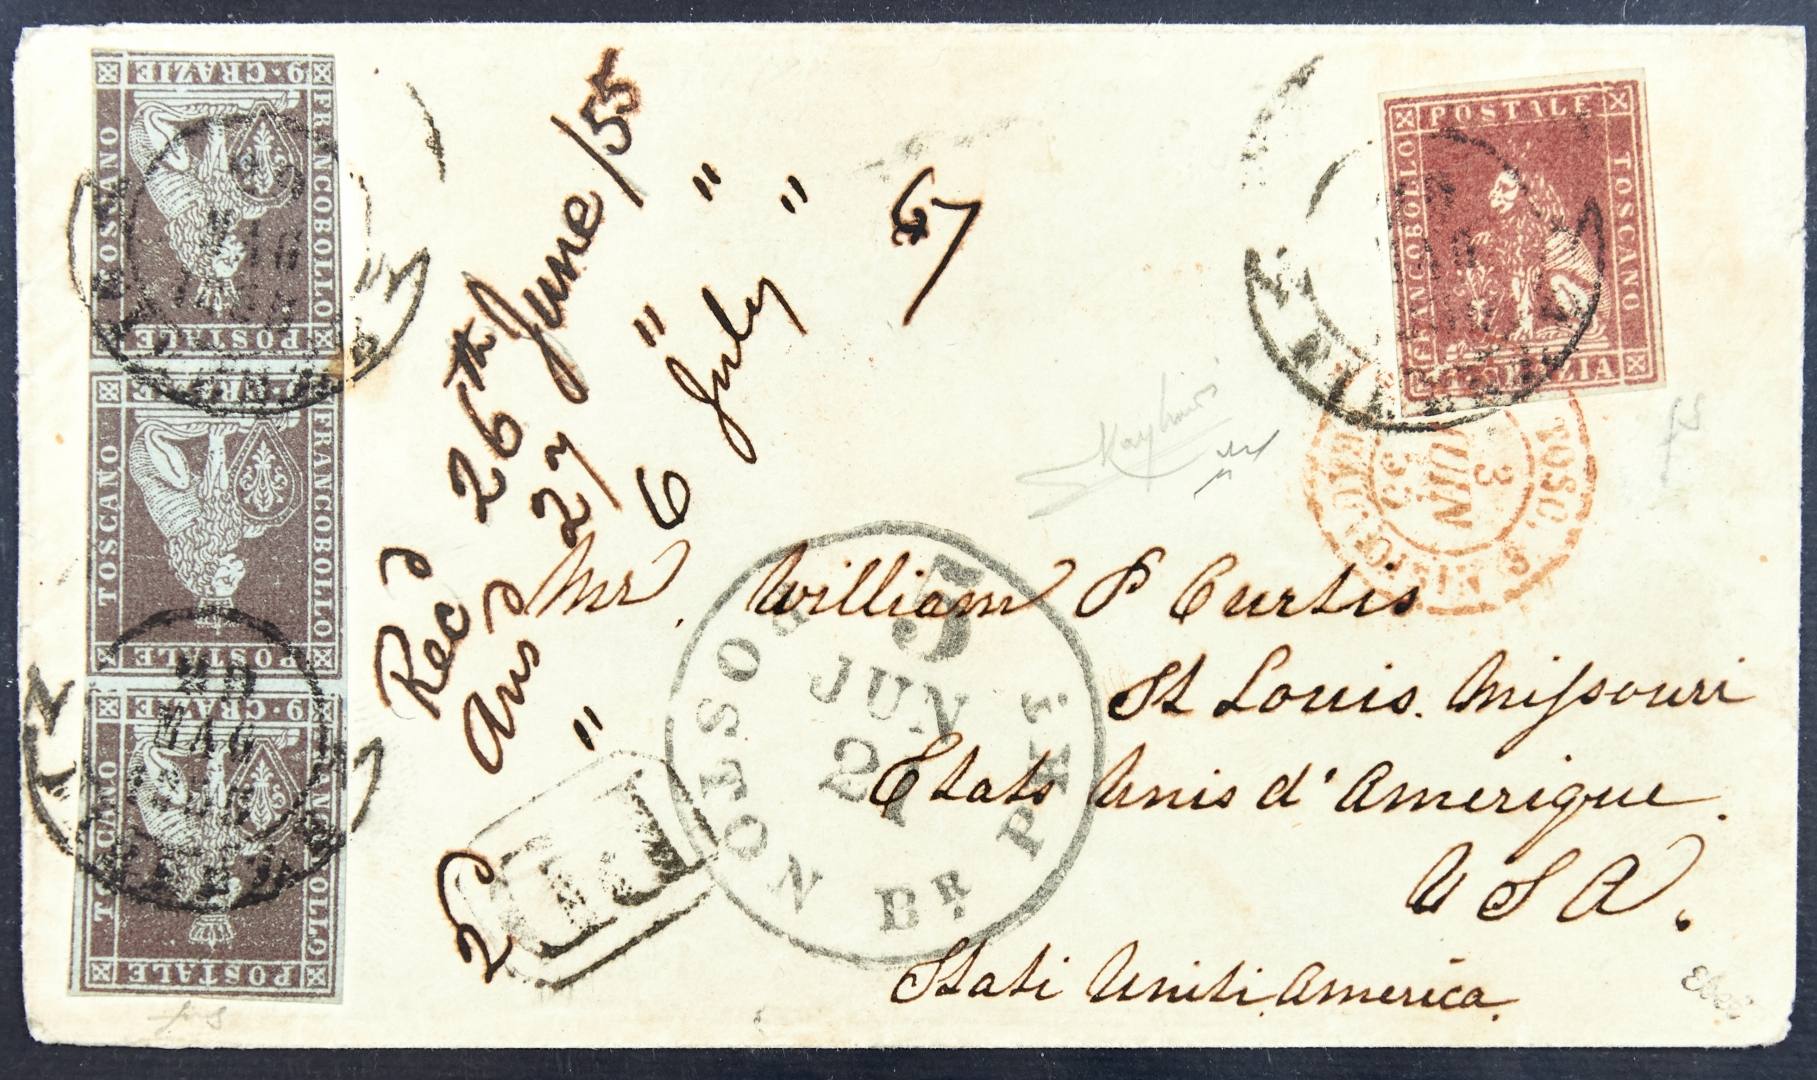 9·CRAZIE
TOSCANO
FRANCOBOLLO
POSTALE
TOSCANO
FRANCOBOLLO
POSTALE
9·CRAZIE
TOSCANO
FRANCOBOLLO
POSTALE
POSTALE
FRANCOBOLLO
TOSCANO
CRAZIA
MAG
MAG
FIRENZE
TOSC.
3
JUIN
55
Recd 26th June /55
Ansd 27 " "
" 6 July "
67
BOSTON BR. PKT.
5
JUN
21
Mr. William P Curtis
St Louis. Missouri
Etats Unis d'Amerique.
U S A.
Stati Uniti America.